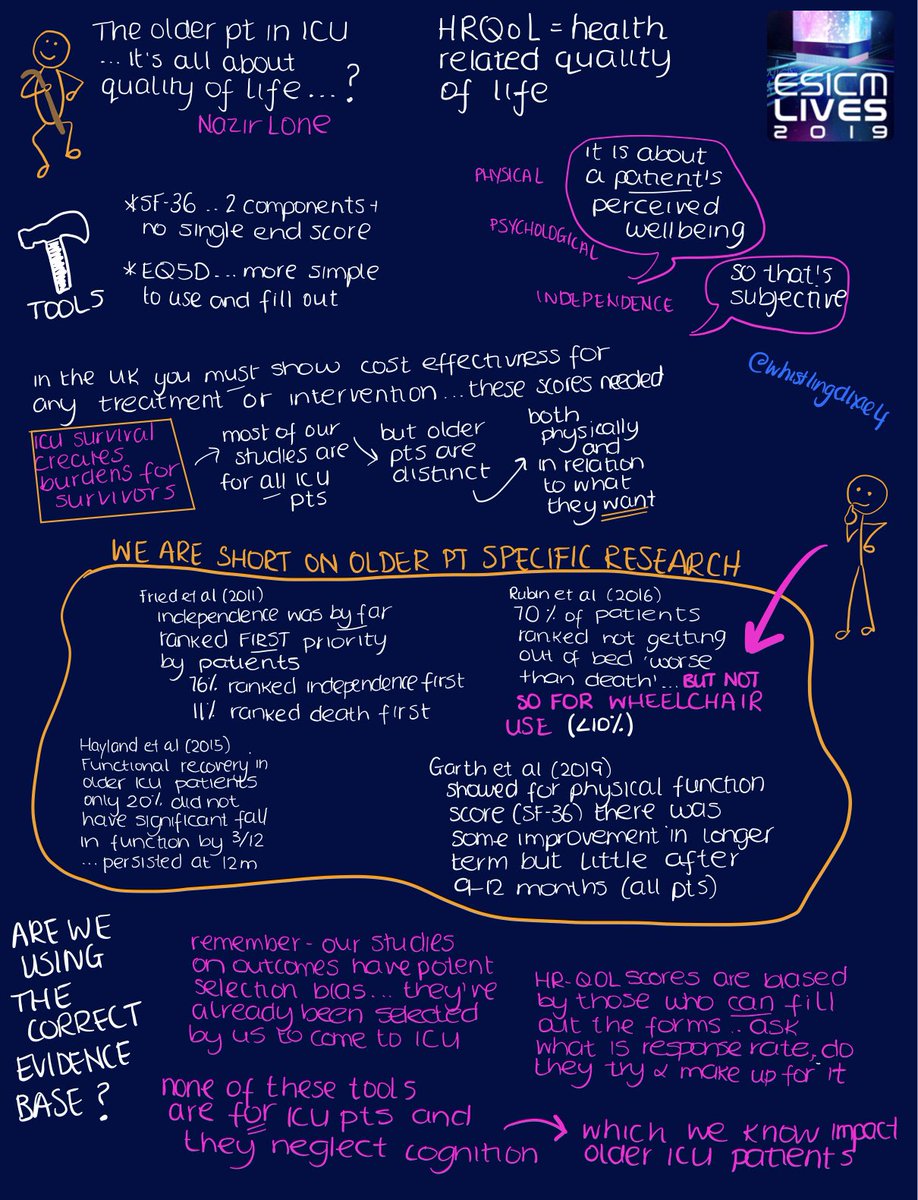 The older pt in ICU
... it's all about
quality of life...?
Nazir Lone
HRQoL = health
related quality
of life
ESICM
LIVES
2019
PHYSICAL
PSYCHOLOGICAL
INDEPENDENCE
it is about
a patient's
perceived
wellbeing
so that's
subjective
TOOLS
*SF-36 .. 2 components +
no single end score
*EQ5D... more simple
to use and fill out
@whistlingdixie4
in the UK you must show cost effectivness for
any treatment or intervention... these scores needed
ICU survival
creates
burdens for
survivors
most of our
studies are
for all ICU
pts
but older
pts are
distinct
both
physically
and
in relation
to what
they want
WE ARE SHORT ON OLDER PT SPECIFIC RESEARCH
Fried et al (2011)
independence was by far
ranked FIRST priority
by patients
76% ranked independence first
11% ranked death first
Rubin et al (2016)
70% of patients
ranked not getting
out of bed 'worse
than death'... BUT NOT
SO FOR WHEELCHAIR
USE (<10%)
Hayland et al (2015)
Functional recovery in
older ICU patients
only 20% did not
have significant fall
in function by 3/12
... persisted at 12m
Garth et al (2019)
showed for physical function
score (SF-36) there was
some improvement in longer
term but little after
9-12 months (all pts)
ARE WE
USING
THE
CORRECT
EVIDENCE
BASE?
remember - our studies
on outcomes have potent
selection bias... they've
already been selected
by us to come to ICU
HR-QOL scores are biased
by those who can fill
out the forms .. ask
what is response rate, do
they try & make up for it
none of these tools
are for ICU pts and
they neglect cognition
which we know impact
older ICU patients